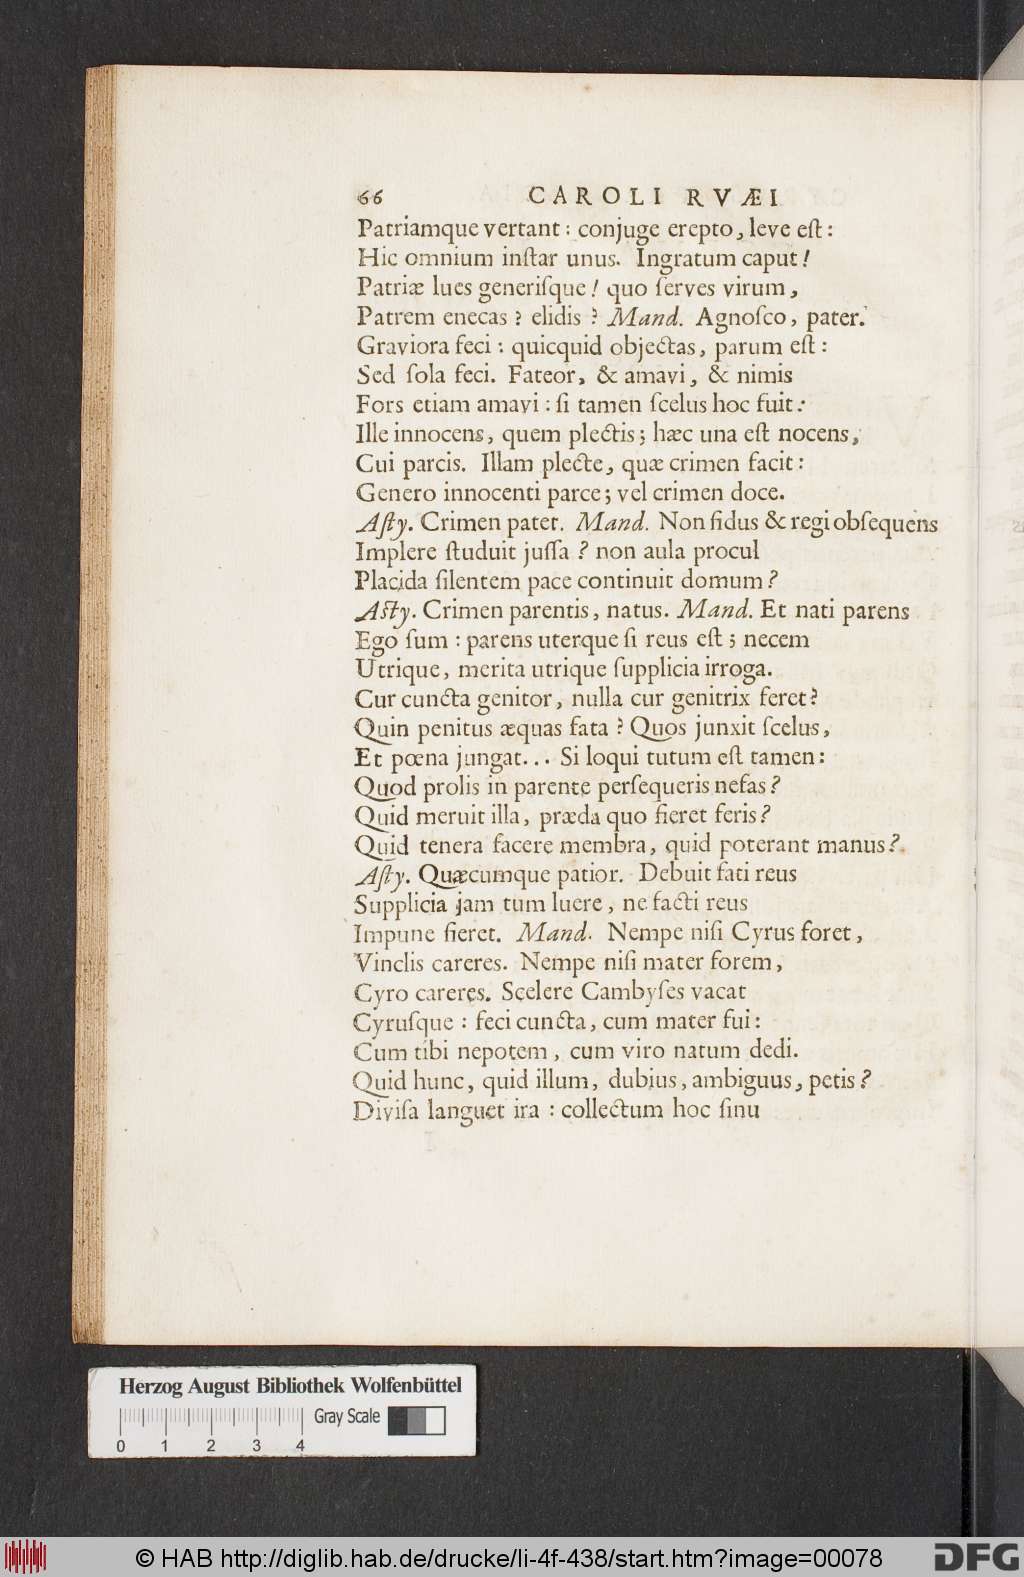 66 CAROLI RVÆI
Patriamque vertant : conjuge erepto, leve eſt :
Hic omnium inſtar unus. Ingratum caput !
Patriæ lues generiſque ! quo ſerves virum,
Patrem enecas ? elidis ? Mand. Agnoſco, pater.
Graviora feci : quicquid objectas, parum eſt :
Sed ſola feci. Fateor, & amavi, & nimis
Fors etiam amavi : ſi tamen ſcelus hoc fuit :
Ille innocens, quem plectis ; hæc una eſt nocens,
Cui parcis. Illam plecte, quæ crimen facit :
Genero innocenti parce ; vel crimen doce.
Aſty. Crimen patet. Mand. Non fidus & regi obſequens
Implere ſtuduit juſſa ? non aula procul
Placida ſilentem pace continuit domum ?
Aſty. Crimen parentis, natus. Mand. Et nati parens
Ego ſum : parens uterque ſi reus eſt ; necem
Utrique, merita utrique ſupplicia irroga.
Cur cuncta genitor, nulla cur genitrix feret ?
Quin penitus æquas fata ? Quos junxit ſcelus,
Et pœna jungat... Si loqui tutum eſt tamen :
Quod prolis in parente perſequeris nefas ?
Quid meruit illa, præda quo fieret feris ?
Quid tenera facere membra, quid poterant manus ?
Aſty. Quæcumque patior. Debuit fati reus
Supplicia jam tum luere, ne facti reus
Impune fieret. Mand. Nempe niſi Cyrus foret,
Vinclis careres. Nempe niſi mater forem,
Cyro careres. Scelere Cambyſes vacat
Cyruſque : feci cuncta, cum mater fui :
Cum tibi nepotem, cum viro natum dedi.
Quid hunc, quid illum, dubius, ambiguus, petis ?
Diviſa languet ira : collectum hoc ſinu
Herzog August Bibliothek Wolfenbüttel
Gray Scale
0 1 2 3 4
© HAB http://diglib.hab.de/drucke/li-4f-438/start.htm?image=00078
DFG